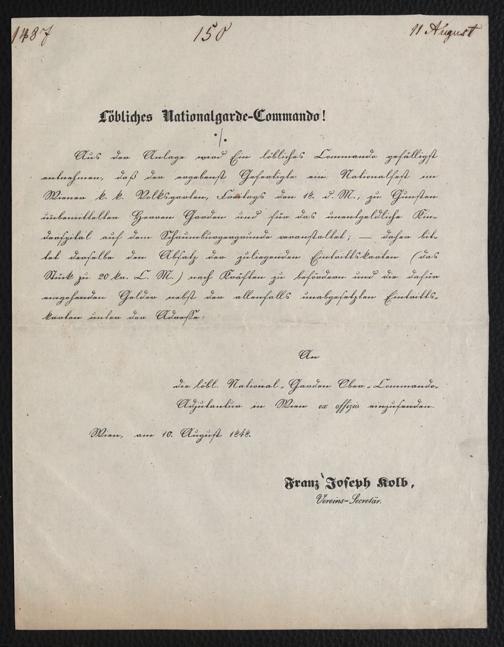 1487 150 11 August
Löbliches Nationalgarde-Commando!
·/.
Aus der Anlage wird Ein löbliches Commando gefälligst
entnehmen, daß der ergebenst Gefertigte ein Nationalfest im
Wiener k. k. Volksgarten, Freitags den 18. d. M., zu Gunsten
unbemittelter Herren Garden und für das unentgeldliche Kin-
derspital auf dem Schaumburgergrunde veranstaltet; — daher bit-
tet derselbe den Absatz der zuliegenden Eintrittskarten (das
Stück zu 20 kr. C. M.) nach Kräften zu befördern und die dafür
eingehenden Gelder nebst den allenfalls unabgesetzten Eintritts-
karten unter der Adresse:
An
die löbl. National-Garden Ober-Commando-
Adjutantur in Wien ex offizio einzusenden.
Wien, am 10. August 1848.
Franz Joseph Kolb,
Vereins-Secretär.